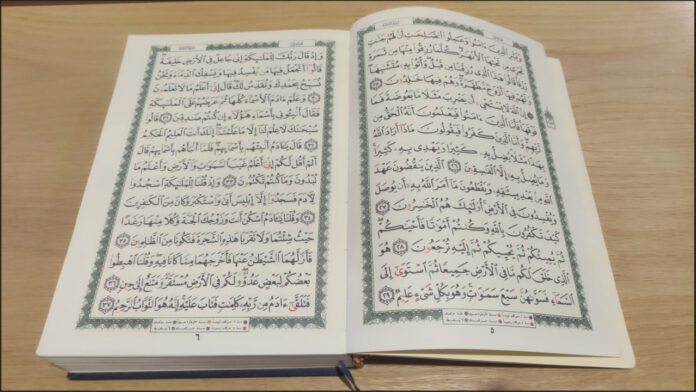 وَبَشِّرِ ٱلَّذِينَ ءَامَنُوا۟ وَعَمِلُوا۟ ٱلصَّـٰلِحَـٰتِ أَنَّ لَهُمْ جَنَّـٰتٍ
تَجْرِى مِن تَحْتِهَا ٱلْأَنْهَـٰرُ كُلَّمَا رُزِقُوا۟ مِنْهَا مِن ثَمَرَةٍ
رِّزْقًا قَالُوا۟ هَـٰذَا ٱلَّذِى رُزِقْنَا مِن قَبْلُ وَأُتُوا۟ بِهِۦ مُتَشَـٰبِهًا
وَلَهُمْ فِيهَآ أَزْوَٰجٌ مُّطَهَّرَةٌ وَهُمْ فِيهَا خَـٰلِدُونَ ٢٥
۞ إِنَّ ٱللَّهَ لَا يَسْتَحْىِۦٓ أَن يَضْرِبَ مَثَلًا مَّا بَعُوضَةً فَمَا
فَوْقَهَا فَأَمَّا ٱلَّذِينَ ءَامَنُوا۟ فَيَعْلَمُونَ أَنَّهُ ٱلْحَقُّ مِن
رَّبِّهِمْ وَأَمَّا ٱلَّذِينَ كَفَرُوا۟ فَيَقُولُونَ مَاذَآ أَرَادَ ٱللَّهُ
بِهَـٰذَا مَثَلًا يُضِلُّ بِهِۦ كَثِيرًا وَيَهْدِى بِهِۦ كَثِيرًا
وَمَا يُضِلُّ بِهِۦٓ إِلَّا ٱلْفَـٰسِقِينَ ٢٦ ٱلَّذِينَ يَنقُضُونَ عَهْدَ
ٱللَّهِ مِنۢ بَعْدِ مِيثَـٰقِهِۦ وَيَقْطَعُونَ مَآ أَمَرَ ٱللَّهُ بِهِۦٓ أَن يُوصَلَ
وَيُفْسِدُونَ فِى ٱلْأَرْضِ أُو۟لَـٰٓئِكَ هُمُ ٱلْخَـٰسِرُونَ ٢٧
كَيْفَ تَكْفُرُونَ بِٱللَّهِ وَكُنتُمْ أَمْوَٰتًا فَأَحْيَـٰكُمْ
ثُمَّ يُمِيتُكُمْ ثُمَّ يُحْيِيكُمْ ثُمَّ إِلَيْهِ تُرْجَعُونَ ٢٨ هُوَ
ٱلَّذِى خَلَقَ لَكُم مَّا فِى ٱلْأَرْضِ جَمِيعًا ثُمَّ ٱسْتَوَىٰٓ إِلَى
ٱلسَّمَآءِ فَسَوَّىٰهُنَّ سَبْعَ سَمَـٰوَٰتٍ وَهُوَ بِكُلِّ شَىْءٍ عَلِيمٌ ٢٩
٥
وَإِذْ قَالَ رَبُّكَ لِلْمَلَـٰٓئِكَةِ إِنِّى جَاعِلٌ فِى ٱلْأَرْضِ خَلِيفَةً
قَالُوٓا۟ أَتَجْعَلُ فِيهَا مَن يُفْسِدُ فِيهَا وَيَسْفِكُ ٱلدِّمَآءَ وَنَحْنُ
نُسَبِّحُ بِحَمْدِكَ وَنُقَدِّسُ لَكَ قَالَ إِنِّىٓ أَعْلَمُ مَا لَا تَعْلَمُونَ
٣٠ وَعَلَّمَ ءَادَمَ ٱلْأَسْمَآءَ كُلَّهَا ثُمَّ عَرَضَهُمْ عَلَى ٱلْمَلَـٰٓئِكَةِ
فَقَالَ أَنۢبِـُٔونِى بِأَسْمَآءِ هَـٰٓؤُلَآءِ إِن كُنتُمْ صَـٰدِقِينَ ٣١ قَالُوا۟
سُبْحَـٰنَكَ لَا عِلْمَ لَنَآ إِلَّا مَا عَلَّمْتَنَآ إِنَّكَ أَنتَ ٱلْعَلِيمُ ٱلْحَكِيمُ
٣٢ قَالَ يَـٰٓـَٔادَمُ أَنۢبِئْهُم بِأَسْمَآئِهِمْ فَلَمَّآ أَنۢبَأَهُم بِأَسْمَآئِهِمْ قَالَ
أَلَمْ أَقُل لَّكُمْ إِنِّىٓ أَعْلَمُ غَيْبَ ٱلسَّمَـٰوَٰتِ وَٱلْأَرْضِ وَأَعْلَمُ مَا
تُبْدُونَ وَمَا كُنتُمْ تَكْتُمُونَ ٣٣ وَإِذْ قُلْنَا لِلْمَلَـٰٓئِكَةِ ٱسْجُدُوا۟
لِـَٔادَمَ فَسَجَدُوٓا۟ إِلَّآ إِبْلِيسَ أَبَىٰ وَٱسْتَكْبَرَ وَكَانَ مِنَ ٱلْكَـٰفِرِينَ
٣٤ وَقُلْنَا يَـٰٓـَٔادَمُ ٱسْكُنْ أَنتَ وَزَوْجُكَ ٱلْجَنَّةَ وَكُلَا مِنْهَا رَغَدًا
حَيْثُ شِئْتُمَا وَلَا تَقْرَبَا هَـٰذِهِ ٱلشَّجَرَةَ فَتَكُونَا مِنَ ٱلظَّـٰلِمِينَ ٣٥
فَأَزَلَّهُمَا ٱلشَّيْطَـٰنُ عَنْهَا فَأَخْرَجَهُمَا مِمَّا كَانَا فِيهِ وَقُلْنَا ٱهْبِطُوا۟
بَعْضُكُمْ لِبَعْضٍ عَدُوٌّ وَلَكُمْ فِى ٱلْأَرْضِ مُسْتَقَرٌّ وَمَتَـٰعٌ إِلَىٰ حِينٍ ٣٦
فَتَلَقَّىٰٓ ءَادَمُ مِن رَّبِّهِۦ كَلِمَـٰتٍ فَتَابَ عَلَيْهِ إِنَّهُۥ هُوَ ٱلتَّوَّابُ ٱلرَّحِيمُ ٣٧
٦